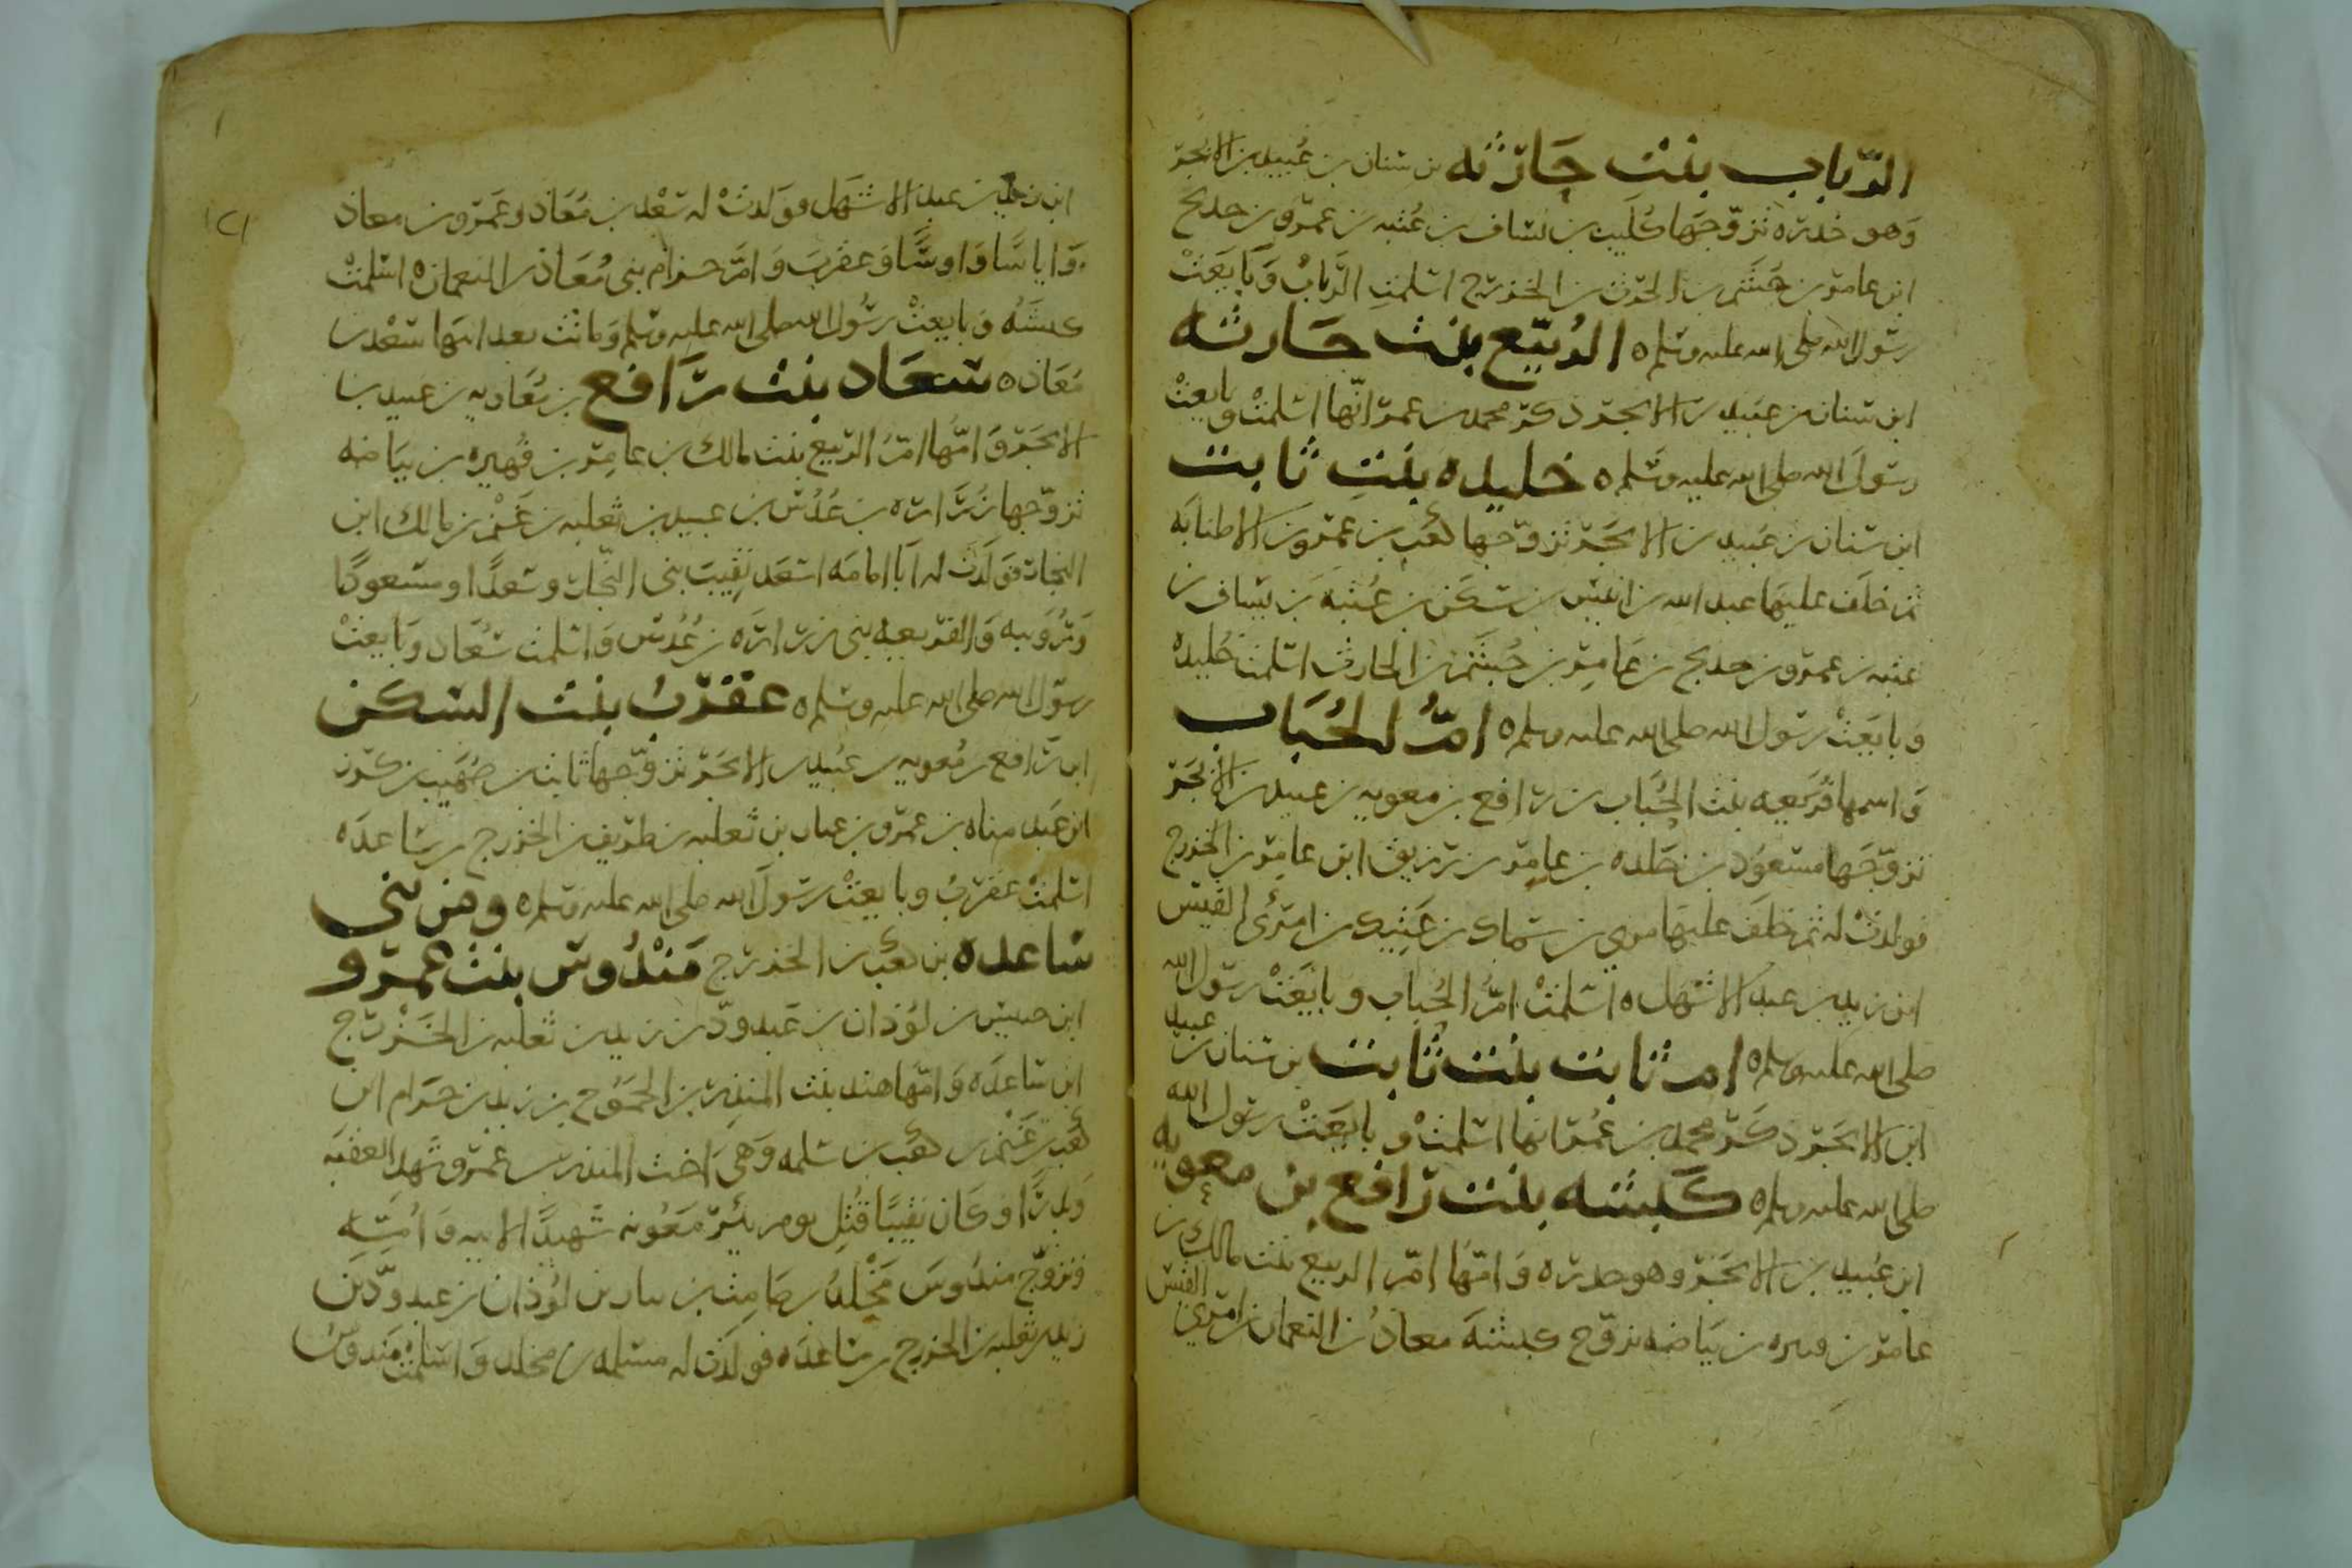 الرباب بنت حارثه بن سنان بن عبيد بن الابجر
وهو خدره تزوجها كليب بن يساف بن عتبه بن عمرو بن خديج
ابن عامر بن جشم بن الحرث بن الخزرج اسلمت الرباب وبايعت
رسول الله صلى الله عليه وسلم ه الربيع بنت حارثه
ابن سنان بن عبيد بن الابجر ذكر محمد بن عمر انها اسلمت وبايعت
رسول الله صلى الله عليه وسلم ه خليده بنت ثابت
ابن سنان بن عبيد بن الابجر تزوجها كعب بن عمرو بن الاطنابه
ثم خلف عليها عبد الله بن انيس بن سكن بن عتبه بن يساف بن
عتبه بن عمرو بن خديج بن عامر بن جشم بن الحارث اسلمت خليده
وبايعت رسول الله صلى الله عليه وسلم ه ام الحباب
واسمها قريعه بنت الحباب بن رافع بن معويه بن عبيد بن الابجر
تزوجها مسعود بن خلده بن عامر بن زريق ابن عامر بن الخزرج
فولدت له ثم خلف عليها بن سماك بن عتيك بن امرئ القيس
ابن زيد بن عبد الاشهل ه اسلمت ام الحباب وبايعت رسول الله
صلى الله عليه وسلم ه ام ثابت بنت ثابت بن سنان بن عبيد
ابن الابجر ذكر محمد بن عمر انها اسلمت وبايعت رسول الله
صلى الله عليه وسلم ه كبشه بنت رافع بن معويه
ابن عبيد بن الابجر وهو خدره وامها ام الربيع بنت مالك بن
عامر بن فهيره بن بياضه تزوج كبشه معاذ بن النعمان بن امرئ القيس
١٢١
ابن زيد بن عبد الاشهل فولدت له سعد بن معاذ وعمرو بن معاذ
واياسا واوسا وعقرب وام حزام بني معاذ بن النعمان ه اسلمت
كبشه وبايعت رسول الله صلى الله عليه وسلم وماتت بعد ابنها سعد بن
معاذ ه سعاد بنت رافع بن معاويه بن عبيد بن
الابجر وامها ام الربيع بنت مالك بن عامر بن فهيره بن بياضه
تزوجها زراره بن عدس بن عبيد بن ثعلبه بن غنم بن مالك ابن
النجار فولدت له ابا امامه اسعد نقيب بني النجار وسعدا ومسعودا
ورويبه والفريعه بني زراره بن عدس واسلمت سعاد وبايعت
رسول الله صلى الله عليه وسلم ه عقرب بنت السكن
ابن رافع بن معويه بن عبيد بن الابجر تزوجها ثابت بن صهيب بن كرز
ابن عبد مناه بن عمرو بن عيان بن ثعلبه بن طريف بن الخزرج بن ساعده
اسلمت عقرب وبايعت رسول الله صلى الله عليه وسلم ه ومن بني
ساعده بن كعب بن الخزرج مندوس بنت عمرو
ابن خنيس بن لوذان بن عبد ود بن زيد بن ثعلبه بن الخزرج
ابن ساعده وامها هند بنت المنذر بن الجموح بن زيد بن حرام ابن
كعب بن غنم بن كعب بن سلمه وهي اخت المنذر بن عمرو شهد العقبه
وبدرا وكان نقيبا قتل يوم بئر معونه شهيدا لابيه وامه
وتزوج مندوس مخلد بن صامت بن نيار بن لوذان بن عبد ود بن
زيد بن ثعلبه بن الخزرج بن ساعده فولدت له مسلمه بن مخلد واسلمت مندوس